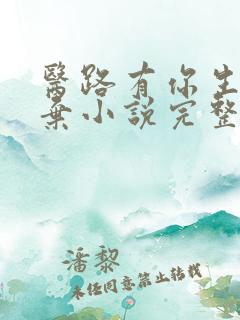 醫路有你生
棄小說完整
潘黎
未任同意禁止转载